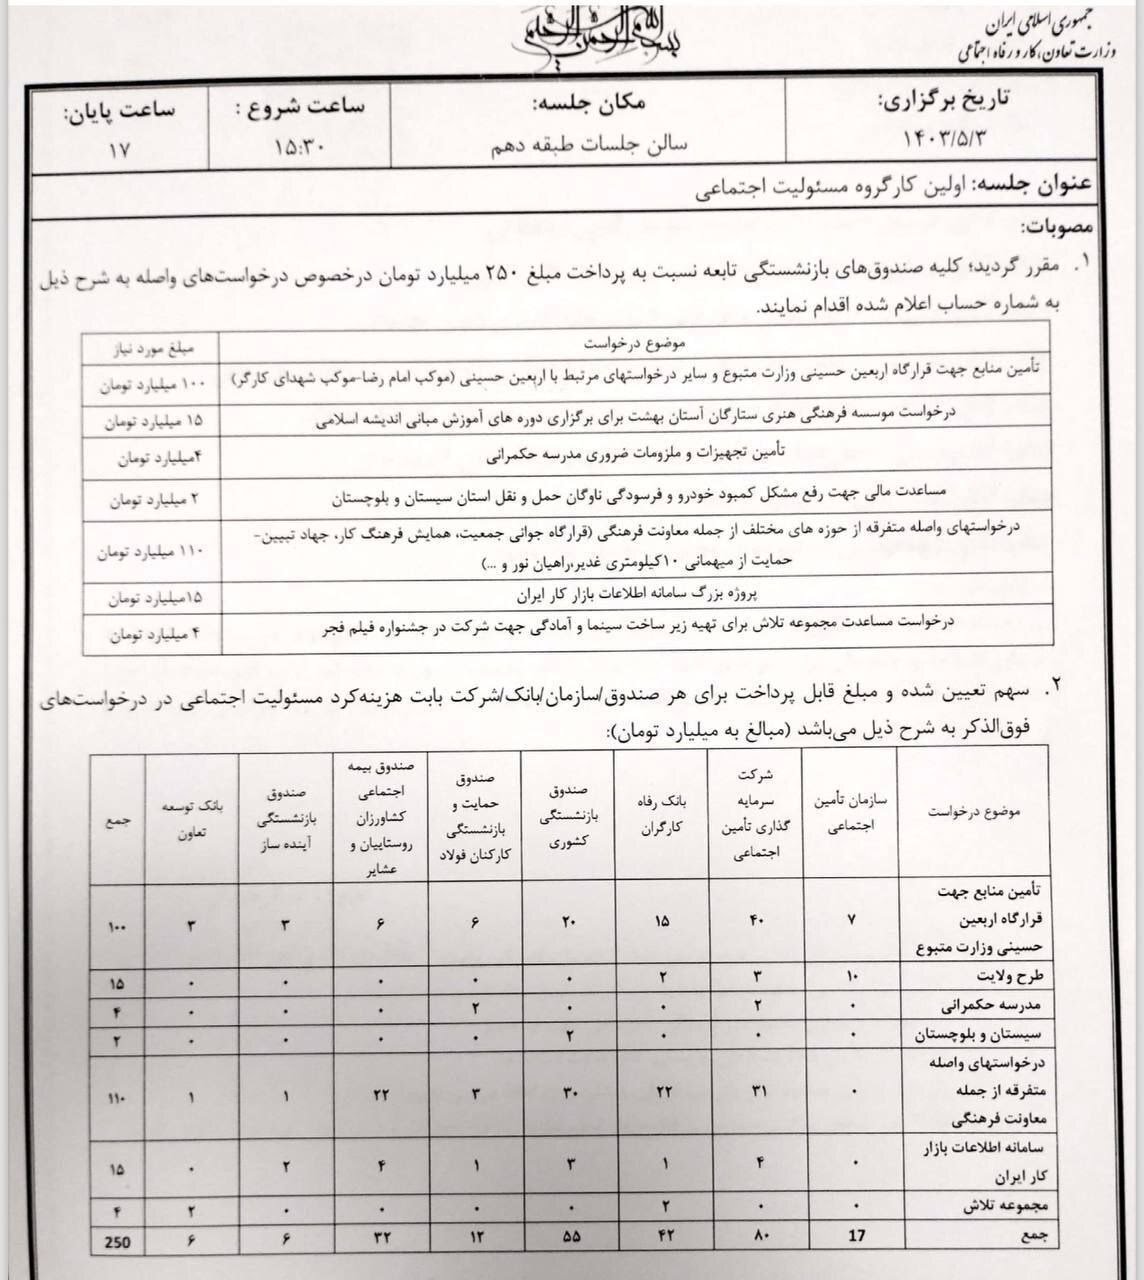 جمهوری اسلامی ایران
وزارت تعاون، کار و رفاه اجتماعی
بسم الله الرحمن الرحیم
تاریخ برگزاری:
۱۴۰۳/۵/۳
مکان جلسه:
سالن جلسات طبقه دهم
ساعت شروع :
۱۵:۳۰
ساعت پایان:
۱۷
عنوان جلسه: اولین کارگروه مسئولیت اجتماعی
مصوبات:
۱. مقرر گردید؛ کلیه صندوق‌های بازنشستگی تابعه نسبت به پرداخت مبلغ ۲۵۰ میلیارد تومان درخصوص درخواست‌های واصله به شرح ذیل
به شماره حساب اعلام شده اقدام نمایند.
موضوع درخواست مبلغ مورد نیاز
تأمین منابع جهت قرارگاه اربعین حسینی وزارت متبوع و سایر درخواستهای مرتبط با اربعین حسینی (موکب امام رضا-موکب شهدای کارگر) ۱۰۰ میلیارد تومان
درخواست موسسه فرهنگی هنری ستارگان آستان بهشت برای برگزاری دوره های آموزش مبانی اندیشه اسلامی ۱۵ میلیارد تومان
تأمین تجهیزات و ملزومات ضروری مدرسه حکمرانی ۴میلیارد تومان
مساعدت مالی جهت رفع مشکل کمبود خودرو و فرسودگی ناوگان حمل و نقل استان سیستان و بلوچستان ۲ میلیارد تومان
درخواستهای واصله متفرقه از حوزه های مختلف از جمله معاونت فرهنگی (قرارگاه جوانی جمعیت، همایش فرهنگ کار، جهاد تبیین-
حمایت از میهمانی ۱۰کیلومتری غدیر،راهیان نور و ...) ۱۱۰ میلیارد تومان
پروژه بزرگ سامانه اطلاعات بازار کار ایران ۱۵میلیارد تومان
درخواست مساعدت مجموعه تلاش برای تهیه زیر ساخت سینما و آمادگی جهت شرکت در جشنواره فیلم فجر ۴ میلیارد تومان
۲. سهم تعیین شده و مبلغ قابل پرداخت برای هر صندوق/سازمان/بانک/شرکت بابت هزینه‌کرد مسئولیت اجتماعی در درخواست‌های
فوق‌الذکر به شرح ذیل می‌باشد (مبالغ به میلیارد تومان):
موضوع درخواست
سازمان تأمین
اجتماعی
شرکت
سرمایه
گذاری تأمین
اجتماعی
بانک رفاه
کارگران
صندوق
بازنشستگی
کشوری
صندوق
حمایت و
بازنشستگی
کارکنان فولاد
صندوق بیمه
اجتماعی
کشاورزان
روستاییان و
عشایر
صندوق
بازنشستگی
آینده ساز
بانک توسعه
تعاون
جمع
تأمین منابع جهت
قرارگاه اربعین
حسینی وزارت متبوع
۷ ۴۰ ۱۵ ۲۰ ۶ ۶ ۳ ۳ ۱۰۰
طرح ولایت ۱۰ ۳ ۲ ۰ ۰ ۰ ۰ ۰ ۱۵
مدرسه حکمرانی ۰ ۲ ۰ ۰ ۲ ۰ ۰ ۰ ۴
سیستان و بلوچستان ۰ ۰ ۰ ۲ ۰ ۰ ۰ ۰ ۲
درخواستهای واصله
متفرقه از جمله
معاونت فرهنگی
۰ ۳۱ ۲۲ ۳۰ ۳ ۲۲ ۱ ۱ ۱۱۰
سامانه اطلاعات بازار
کار ایران
۰ ۴ ۱ ۳ ۱ ۴ ۲ ۰ ۱۵
مجموعه تلاش ۰ ۰ ۲ ۰ ۰ ۰ ۰ ۲ ۴
جمع 17 ۸۰ ۴۲ ۵۵ ۱۲ ۳۲ ۶ ۶ 250